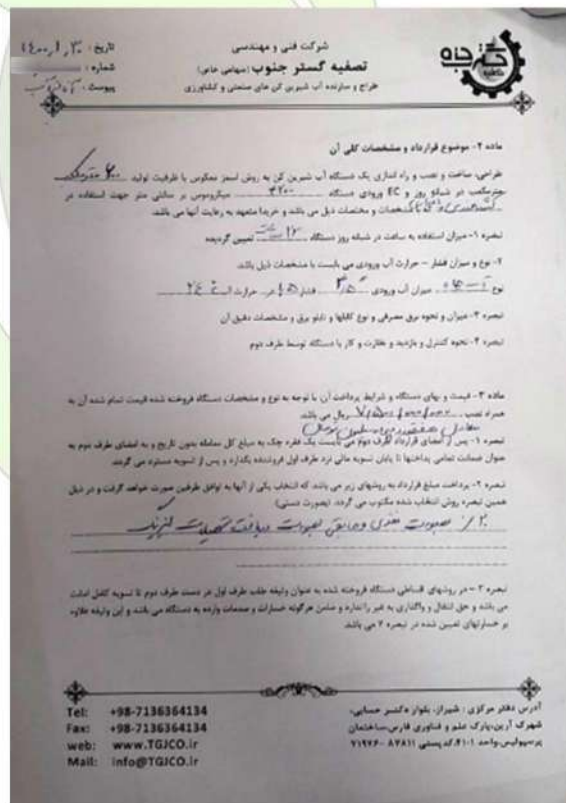 شرکت فنی و مهندسی
تصفیه گستر جنوب (سهامی خاص)
طراح و سازنده آب شیرین کن های صنعتی و کشاورزی
تاریخ : ۱۴۰۰/۱/۳۰
شماره :
پیوست :
ماده ۲- موضوع قرارداد و مشخصات کلی آن
طراحی، ساخت و نصب و راه اندازی یک دستگاه آب شیرین کن به روش اسمز معکوس با ظرفیت تولید
مترمکعب در شبانه روز و EC ورودی دستگاه میکروموس بر سانتی متر جهت استفاده در
مشخصات و مختصات ذیل می باشد و خریدار متعهد به رعایت آنها می باشد.
تبصره ۱- میزان استفاده به ساعت در شبانه روز دستگاه تعیین گردیده
۲- نوع و میزان فشار – حرارت آب ورودی می بایست با مشخصات ذیل باشد.
نوع میزان آب ورودی فشار حرارت آب
تبصره ۳- میزان و نحوه برق مصرفی و نوع کابلها و تابلو برق و مشخصات دقیق آن
تبصره ۴- نحوه کنترل و بازدید و نظارت و کار با دستگاه توسط طرف دوم
ماده ۳- قیمت و بهای دستگاه و شرایط پرداخت آن با توجه به نوع و مشخصات دستگاه فروخته شده قیمت تمام شده آن به
همراه نصب ریال می باشد.
تبصره ۱- پس از امضای قرارداد طرف دوم می بایست یک فقره چک به مبلغ کل معامله بدون تاریخ و به امضای طرف دوم به
عنوان ضمانت تمامی پرداختها تا پایان تسویه مالی نزد طرف اول فروشنده بگذارد و پس از تسویه مسترد می گردد.
تبصره ۲- پرداخت مبلغ قرارداد به روشهای زیر می باشد که انتخاب یکی از آنها به توافق طرفین صورت خواهد گرفت و در ذیل
همین تبصره روش انتخاب شده مکتوب می گردد. (بصورت دستی)
بصورت نقدی و مابقی بصورت دریافت تسهیلات
تبصره ۳ – در روشهای اقساطی دستگاه فروخته شده به عنوان وثیقه طلب طرف اول در دست طرف دوم تا تسویه کامل امانت
می باشد و حق انتقال و واگذاری به غیر را ندارد و ضامن هرگونه خسارات و صدمات وارده به دستگاه می باشد و این وثیقه علاوه
بر خسارتهای تعیین شده در تبصره ۲ می باشد.
آدرس دفتر مرکزی : شیراز، بلوار دکتر حسابی،
شهرک آرین،پارک علم و فناوری فارس،ساختمان
پرسپولیس،واحد ۴۱۰۱،کد پستی ۸۷۸۱۱-۷۱۹۷۶
Tel: +98-7136364134
Fax: +98-7136364134
web: www.TGJCO.ir
Mail: info@TGJCO.ir